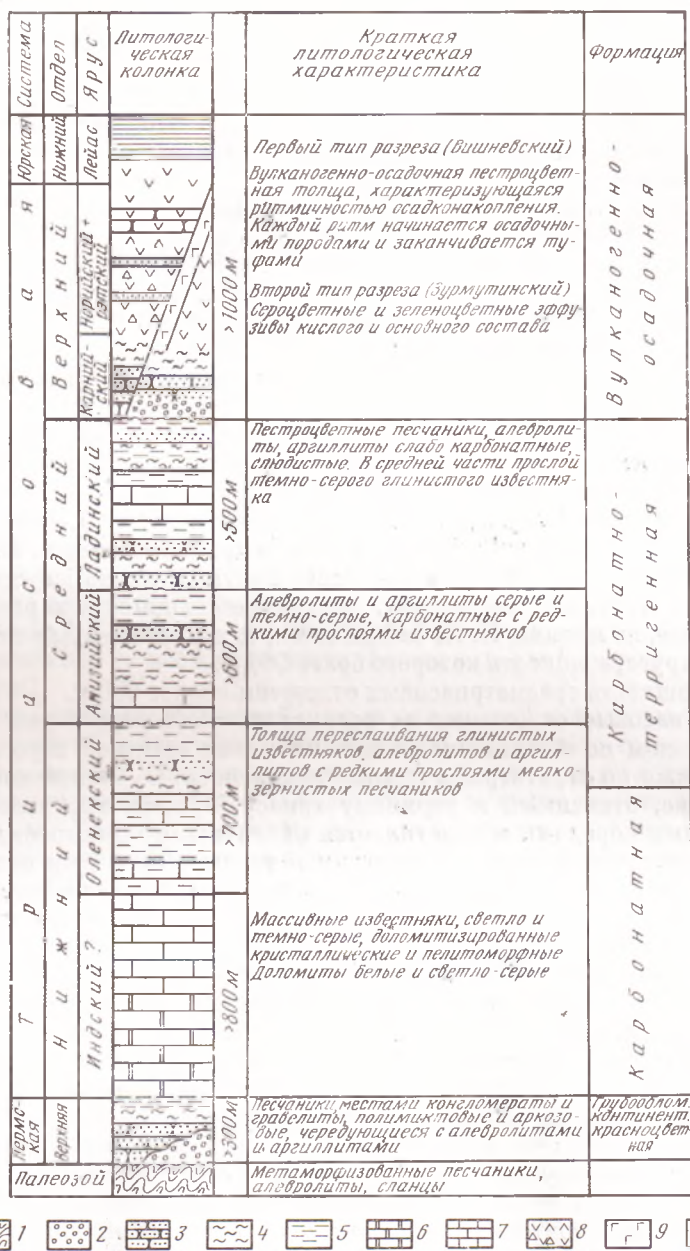 Система
Отдел
Ярус
Литологи-
ческая
колонка
Краткая
литологическая
характеристика
Формация
Юрская
Нижний
Лейас
Триасовая
Верхний
Норийский +
рэтский
Карний-
ский
>1000м
Первый тип разреза (Вишневский)
Вулканогенно-осадочная пестроцвет-
ная толща, характеризующаяся
ритмичностью осадконакопления.
Каждый ритм начинается осадочны-
ми породами и заканчивается ту-
фами
Второй тип разреза (Зурмутинский)
Сероцветные и зеленоцветные эффу-
зивы кислого и основного состава
Вулканогенно-
осадочная
Средний
Ладинский
>500м
Пестроцветные песчаники, алевроли-
ты, аргиллиты слабо карбонатные,
слюдистые. В средней части прослой
темно-серого глинистого известня-
ка
Карбонатно-
терригенная
Анизийский
>600м
Алевролиты и аргиллиты серые и
темно-серые, карбонатные с ред-
кими прослоями известняков
Нижний
Оленекский
>700м
Толща переслаивания глинистых
известняков, алевролитов и аргил-
литов с редкими прослоями мелко
зернистых песчаников
Карбонатная
Индский ?
>800м
Массивные известняки, светло и
темно-серые, доломитизированные
кристаллические и пелитоморфные
Доломиты белые и светло-серые
Пермс-
кая
Верхняя
>300м
Песчаники, местами конгломераты и
гравелиты, полимиктовые и аркозо-
вые, чередующиеся с алевролитами
и аргиллитами
Грубооблом.
континент.
красноцвет-
ная
Палеозой
Метаморфизованные песчаники,
алевролиты, сланцы
1 2 3 4 5 6 7 8 9